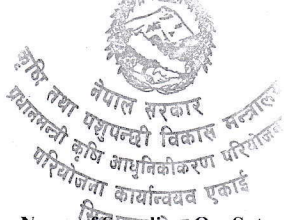 नेपाल सरकार
कृषि तथा पशुपन्छी विकास मन्त्रालय
प्रधानमन्त्री कृषि आधुनिकीकरण परियोजना
परियोजना कार्यान्वयन एकाई